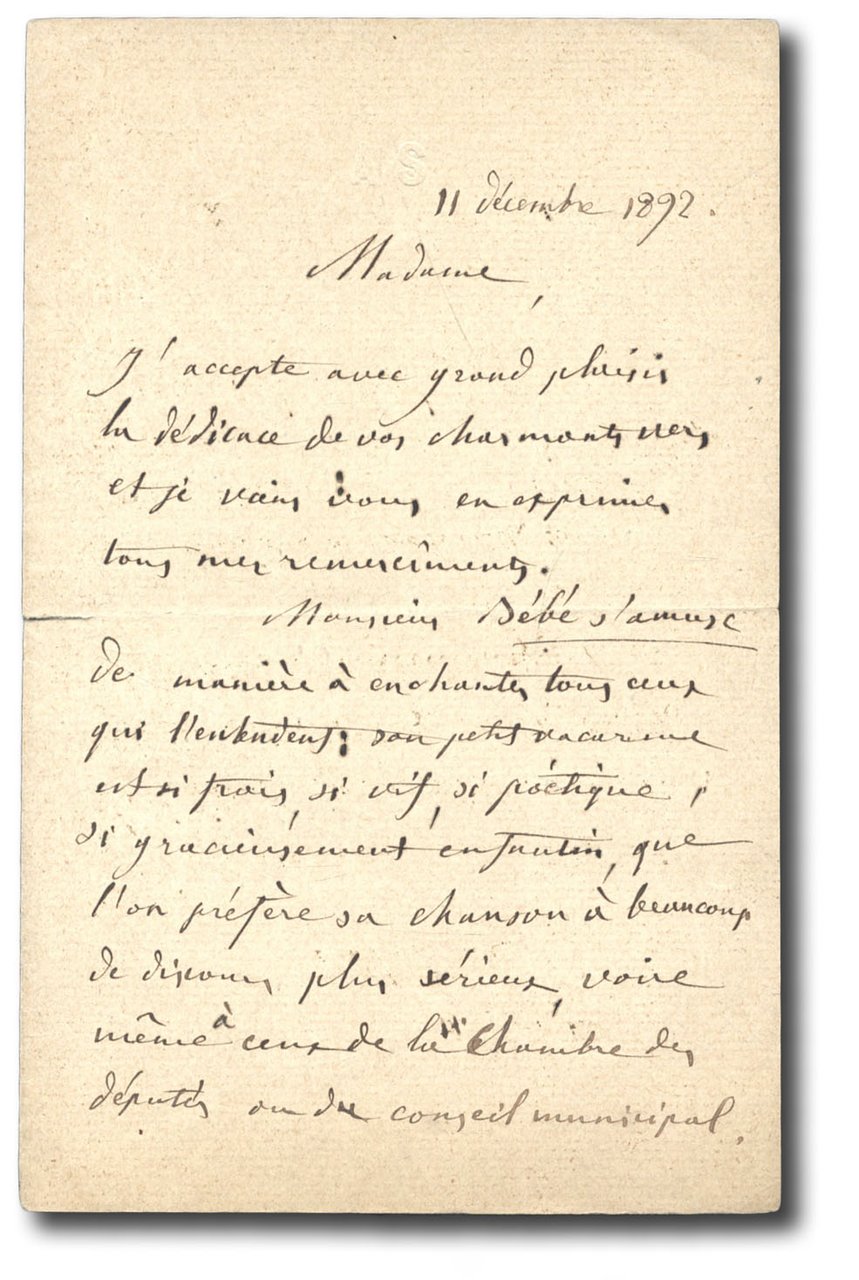 11 décembre 1892.
Madame,
J'accepte avec grand plaisir
la dédicace de vos charmants vers
et je viens vous en exprimer
tous mes remerciments.
Monsieur Bébé s'amuse
de manière à enchanter tous ceux
qui l'entendent; son petit vacarme
est si frais, si vif, si poétique,
si gracieusement enfantin, que
l'on préfère sa chanson à beaucoup
de discours plus sérieux, voire
même à ceux de la Chambre des
députés ou du conseil municipal.